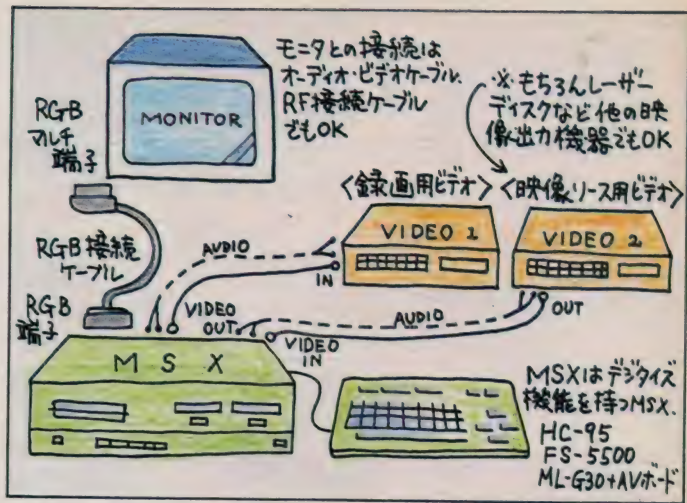 モニタとの接続は
オーディオ・ビデオケーブル、
RF接続ケーブル
でもOK
※もちろんレーザー
ディスクなど他の映
像出力機器でもOK
RGB
マルチ
端子
MONITOR
<録画用ビデオ>
<映像ソース用ビデオ>
VIDEO 1
VIDEO 2
RGB接続
ケーブル
AUDIO
IN
RGB
端子
VIDEO
OUT
AUDIO
OUT
VIDEO
IN
MSX
MSXはデジタイズ
機能を持つMSX.
HC-95
FS-5500
ML-G30+AVボード